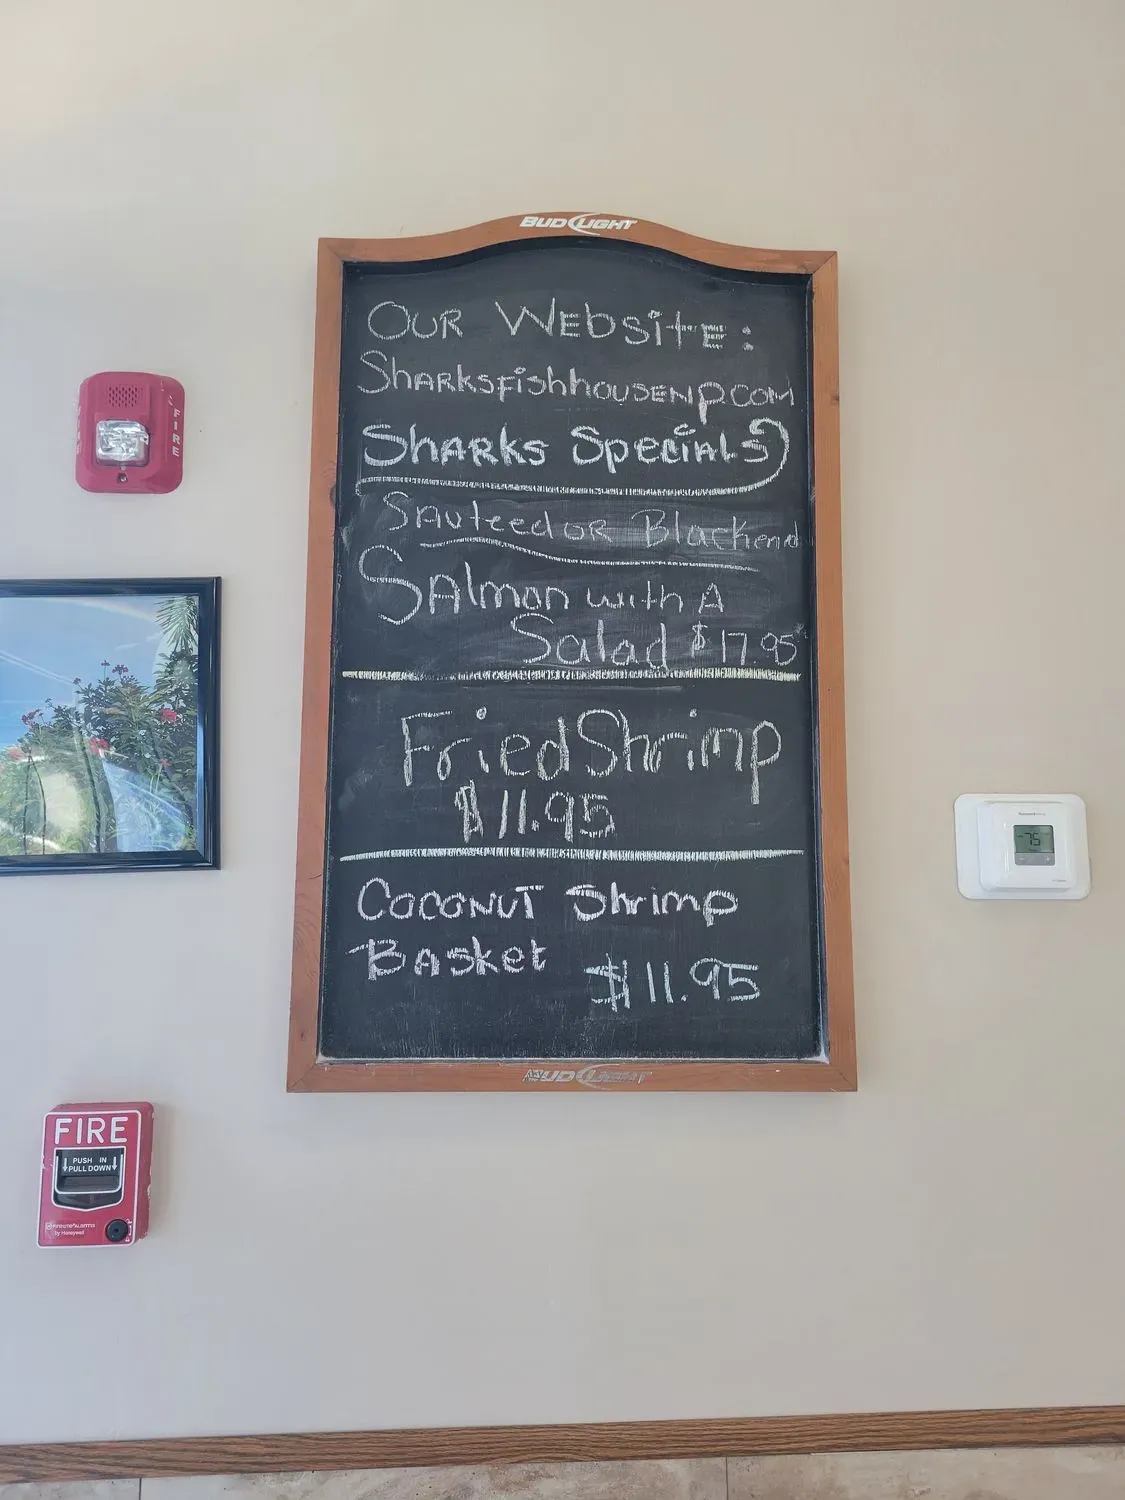 BUD LIGHT
OUR WEBSITE:
SHARKSFISHHOUSENP.COM
SHARKS SPECIALS
SAUTEED OR BLACKEND
SALMON WITH A
SALAD $17.95
Fried Shrimp
$11.95
COCONUT Shrimp
BASKET $11.95
BUD LIGHT
FIRE
75
FIRE
PUSH IN
PULL DOWN
by Honeywell